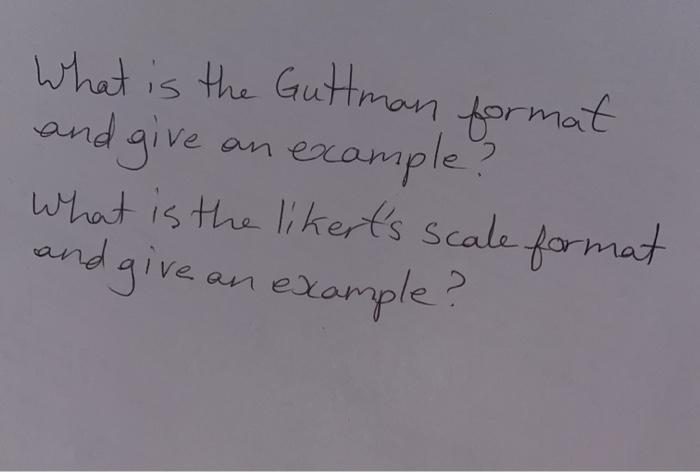 What is the Guttman format
and give an example?
What is the likert's scale format
and give an example?